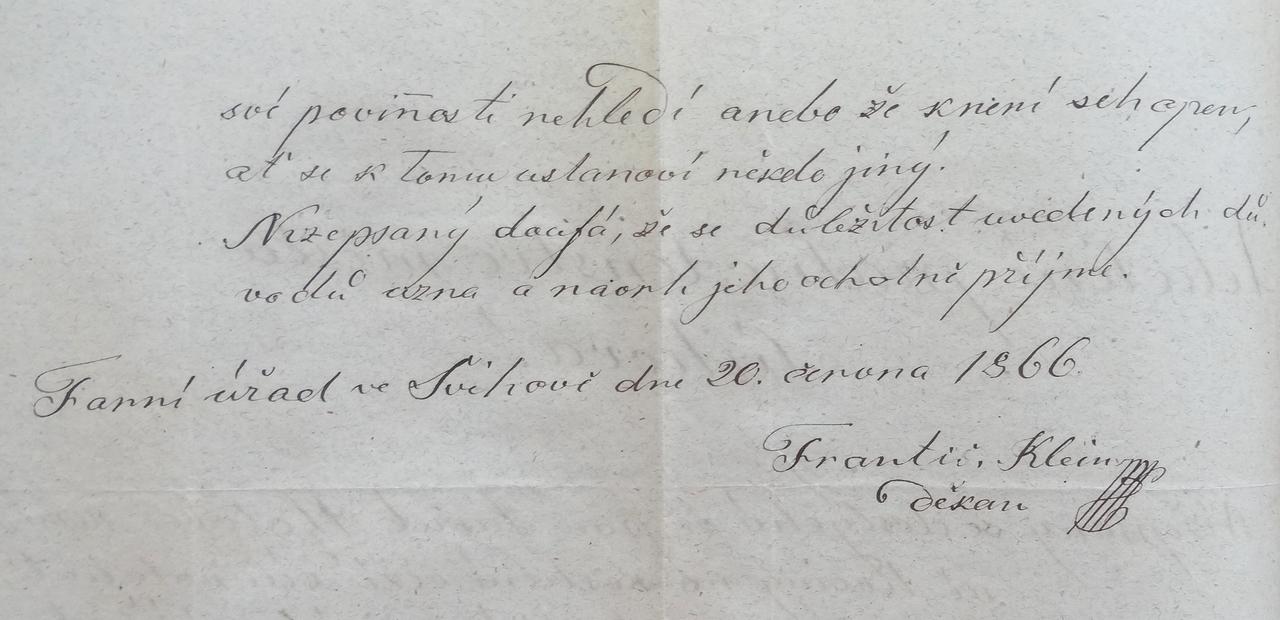 své povin̄osti nehledí anebo že k není schopen,
ať se k tomu ustanoví někdo jiný.
Nizepsaný doufá, že se důležitost uvedených dů-
vodů uzna a návrh jeho ochotně příjme.
Farní úřad ve Švihově dne 20. června 1866.
Františ. Klein
děkan